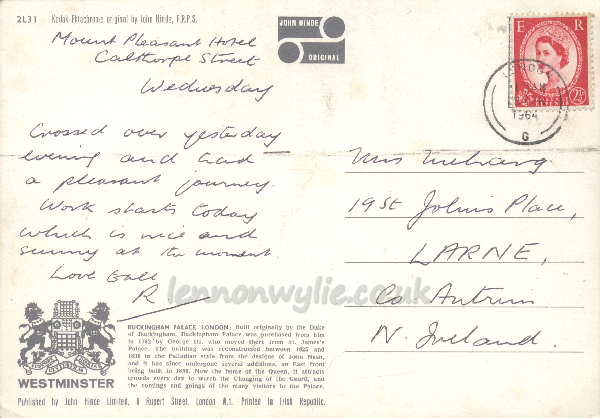 2L31 Kodak Ektachrome original by John Hinde, F.R.P.S.
JOHN HINDE
ORIGINAL
E R
2½
LONDON
1964
G
Mount Pleasant Hotel
Calthorpe Street
Wednesday
Crossed over yesterday
evening and had
a pleasant journey.
Work starts today
which is nice and
sunny at the moment.
Love to all
R
Mrs Meharg
19 St John's Place,
LARNE,
Co Antrim
N. Ireland.
lennonwylie.co.uk
WESTMINSTER
BUCKINGHAM PALACE, LONDON: Built originally by the Duke
of Buckingham, Buckingham Palace was purchased from him
in 1762 by George III, who moved there from St. James's
Palace. The building was reconstructed between 1825 and
1836 in the Palladian style from the designs of John Nash,
and it has since undergone several additions, an East front
being built in 1846. Now the home of the Queen, it attracts
crowds every day to watch the Changing of the Guard, and
the comings and goings of the many visitors to the Palace.
Published by John Hinde Limited, 6 Rupert Street, London W.1. Printed in Irish Republic.